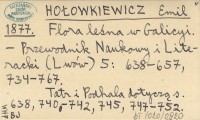 HOŁOWKIEWICZ Emil
1877. Flora leśna w Galicyi.
- Przewodnik Naukowy i Lite-
racki (Lwów) 5: 638-657,
734-767.
Tatr i Podhala dotyczą s.
638, 740-742, 745, 747-752.
BJ